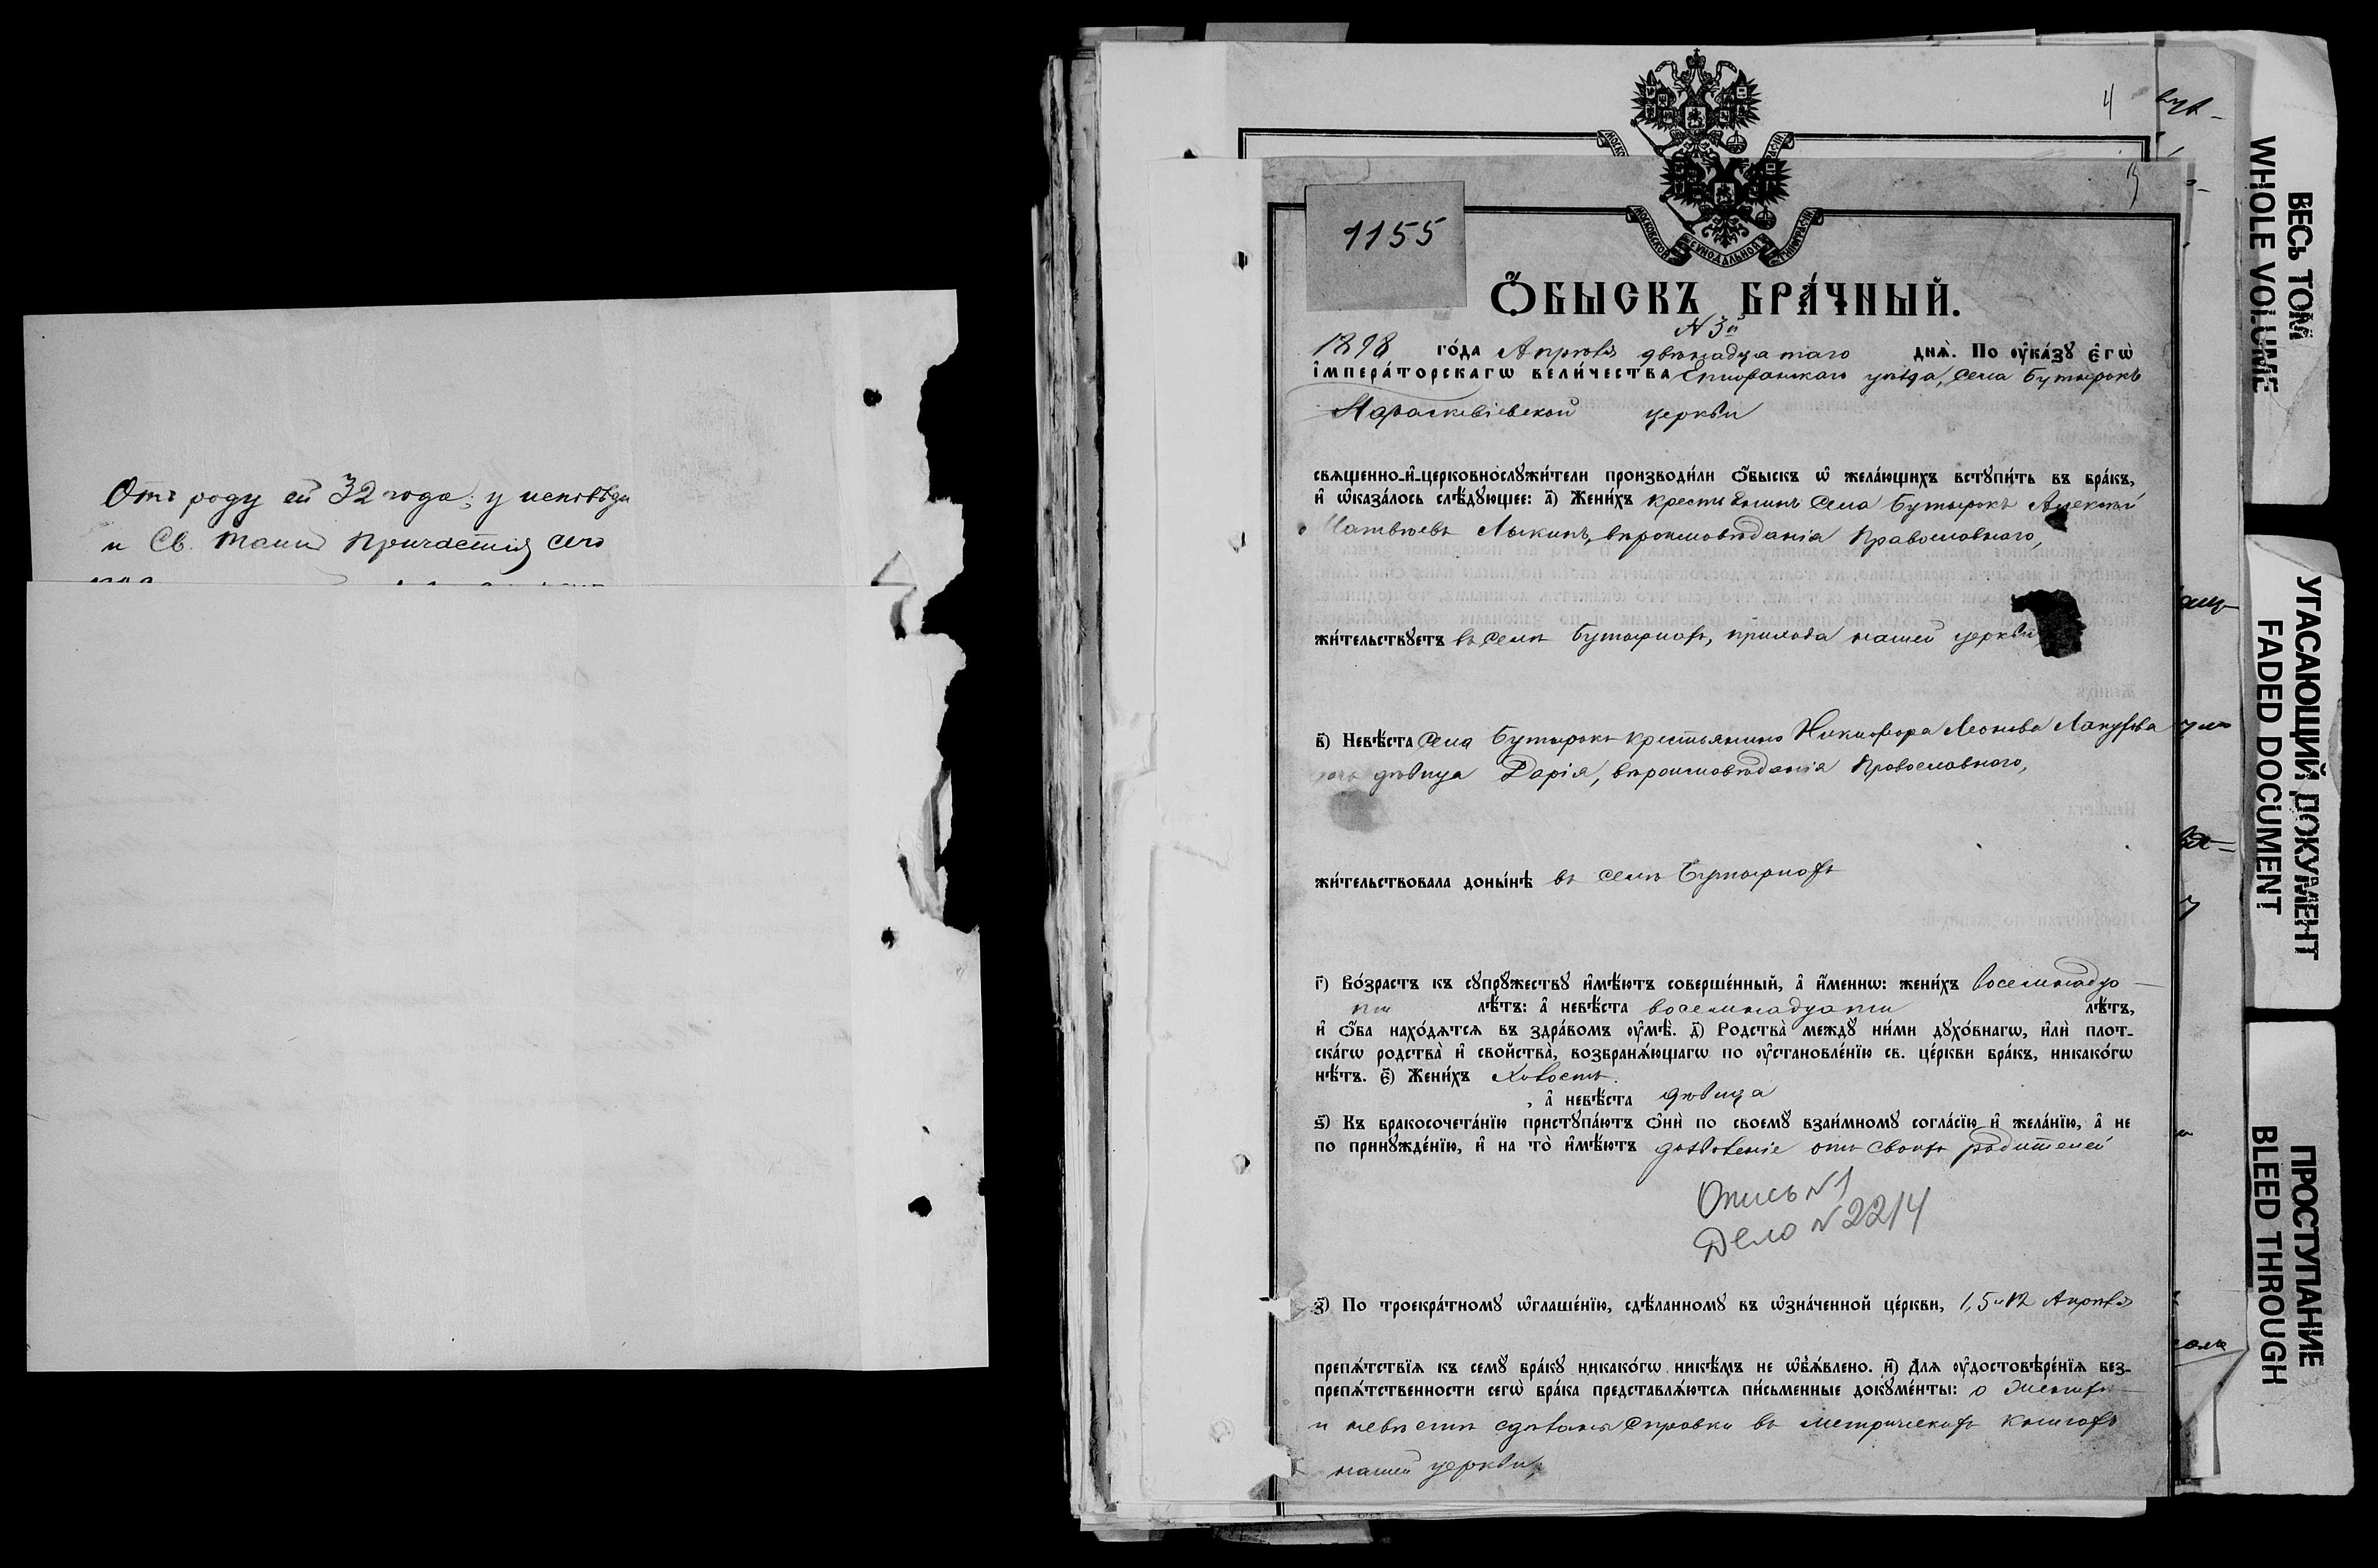 Отъ роду ей 32 года; у исповѣди
и Св. Таинъ Причастія сего
4
1155
МОСКОВСКОЙ СѴНОДАЛЬНОЙ ТИПОГРАФІИ
Ѻ҆БЫСКЪ БРА́ЧНЫЙ.
N 3й
1898 го́да Апрѣля двѣнадцатаго днѧ̀. По ᲂу҆ка́зꙋ є҆гѡ̀
і҆мпера́торскагѡ вели́чества Епифанскаго уѣзда, села Бутырокъ
Параскевіевской церкви
свѧщенно-и҆-церковнослꙋжи́тели производи́ли ѻ҆́быскъ ѡ҆ жела́ющихъ встꙋпи́ть въ бра́къ,
и҆ ѡ҆каза́лось слѣ́дꙋющее: а҃) Жени́хъ крестьянинъ села Бутырокъ Алексѣй
Матвѣевъ Лыкинъ, вѣроисповѣданія Православнаго,
жи́тельствꙋетъ въ селѣ Бутыркахъ, прихода нашей церкви
в҃) Невѣ́ста села Бутырокъ крестьянина Никифора Леонова
дѣвица Дарія, вѣроисповѣданія Православнаго,
жи́тельствовала доны́нѣ въ селѣ Бутыркахъ
г҃) Во́зрастъ къ сꙋпрꙋ́жествꙋ и҆мѣ́ютъ соверше́нный, а҆ и҆́меннѡ: жени́хъ восемнадца-
ти лѣ́тъ: а҆ невѣ́ста восемнадцати лѣ́тъ,
и҆ ѻ҆́ба нахо́дѧтсѧ въ здра́вомъ ᲂу҆мѣ̀. д҃) Родства̀ междꙋ ни́ми дꙋхо́внагѡ, и҆лѝ плот-
ска́гѡ родства̀ и҆ свойства̀, возбранѧ́ющагѡ по ᲂу҆становле́нїю св. це́ркви бра́къ, никако́гѡ
нѣ́тъ. є҃) Жени́хъ холостъ.
, а҆ невѣ́ста дѣвица
ѕ҃) Къ бракосочета́нїю пристꙋпа́ютъ ѻ҆нѝ по своемꙋ̀ взаи́мномꙋ согла́сїю и҆ жела́нїю, а҆ не
по принꙋжде́нїю, и҆ на то̀ и҆мѣ́ютъ дозволеніе отъ своихъ родителей
Опись N1
Дело N2214
з҃) По троекра́тномꙋ ѡ҆глаше́нїю, сдѣ́ланномꙋ въ ѡ҆зна́ченной це́ркви, 1, 5 и 12 Апрѣля
препѧ́тствїѧ къ семꙋ̀ бра́кꙋ никако́гѡ никѣ́мъ не ѡ҆бъѧ́влено. и҃) Длѧ ᲂу҆достовѣре́нїѧ без-
препѧ́тственности сегѡ̀ бра́ка представлѧ́ютсѧ пи́сьменные докꙋме́нты: о женихѣ
и невѣстѣ сдѣланы справки въ метрическихъ книгахъ
нашей церкви;
ВЕСЬ ТОМ
WHOLE VOLUME
УГАСАЮЩИЙ ДОКУМЕНТ
FADED DOCUMENT
ПРОСТУПАНИЕ
BLEED THROUGH